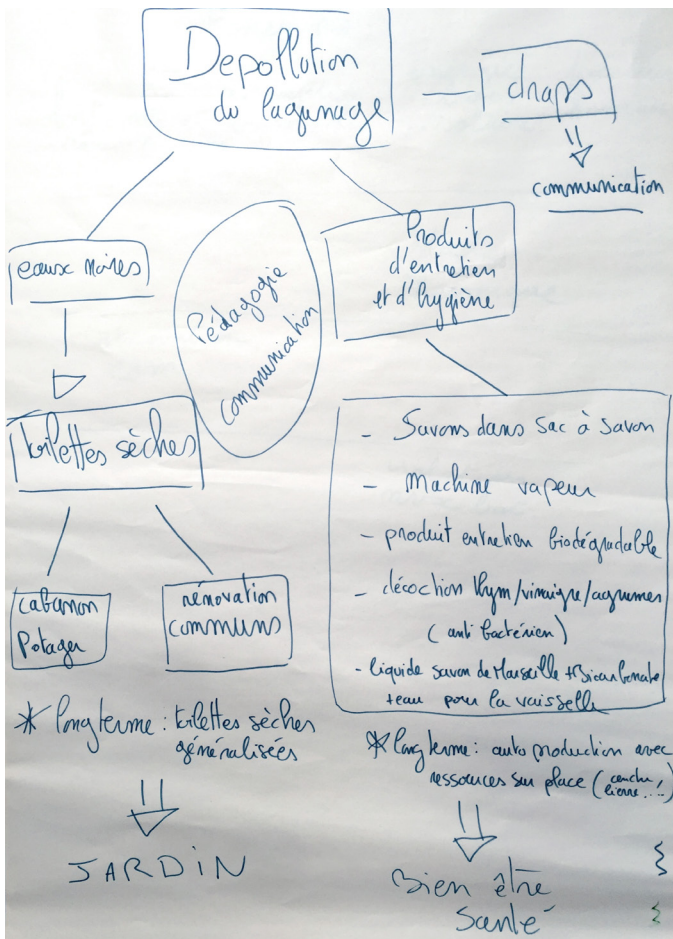 Depollution
du lagunage
draps
communication
eaux noires
Pédagogie
communication
Produits
d'entretien
et d'hygiène
toilettes sèches
- Savons dans sac à savon
- machine vapeur
- produit entretien biodégradable
- décoction thym/vinaigre/agrumes
(anti bactérien)
- liquide savon de Marseille + Bicarbonate
+ eau pour la vaisselle
cabanon
Potager
rénovation
communs
* long terme : toilettes sèches
généralisées
JARDIN
* long terme : auto production avec
ressources sur place (cendre,
lierre....)
Bien être
Santé